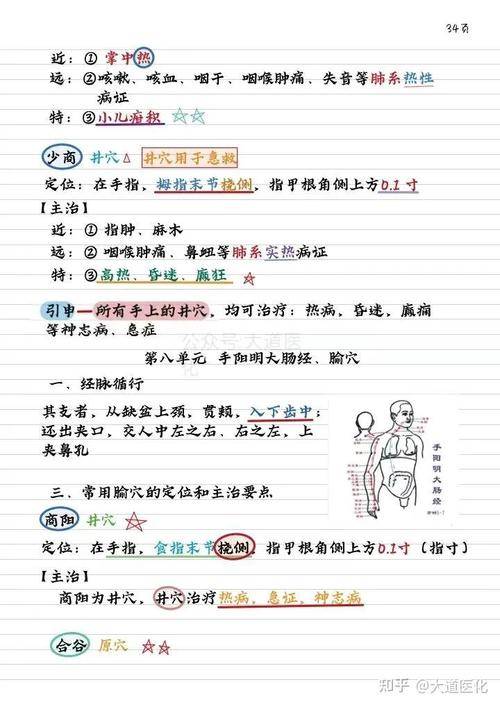 34页
近：① 掌中热
远：②咳嗽、咳血、咽干、咽喉肿痛、失音等肺系热性
病证
特：③小儿疳积 ☆☆
少商 井穴△ 井穴用于急救
定位：在手指，拇指末节桡侧，指甲根角侧上方0.1寸
【主治】
近：① 指肿、麻木
远：② 咽喉肿痛、鼻衄等肺系实热病证
特：③高热、昏迷、癫狂 ☆
引申—所有手上的井穴，均可治疗：热病，昏迷，癫痫
等神志病、急症
公众号:大道医化
第八单元 手阳明大肠经、腧穴
一、经脉循行
其支者，从缺盆上颈，贯颊，入下齿中；
还出夹口，交人中左之右、右之左，上
夹鼻孔
手阳明大肠经
三、常用腧穴的定位和主治要点
商阳 井穴 ☆
定位：在手指，食指末节桡侧，指甲根角侧上方0.1寸（指寸）
【主治】
商阳为井穴，井穴治疗热病、急证、神志病
合谷 原穴 ☆☆
知乎 @大道医化